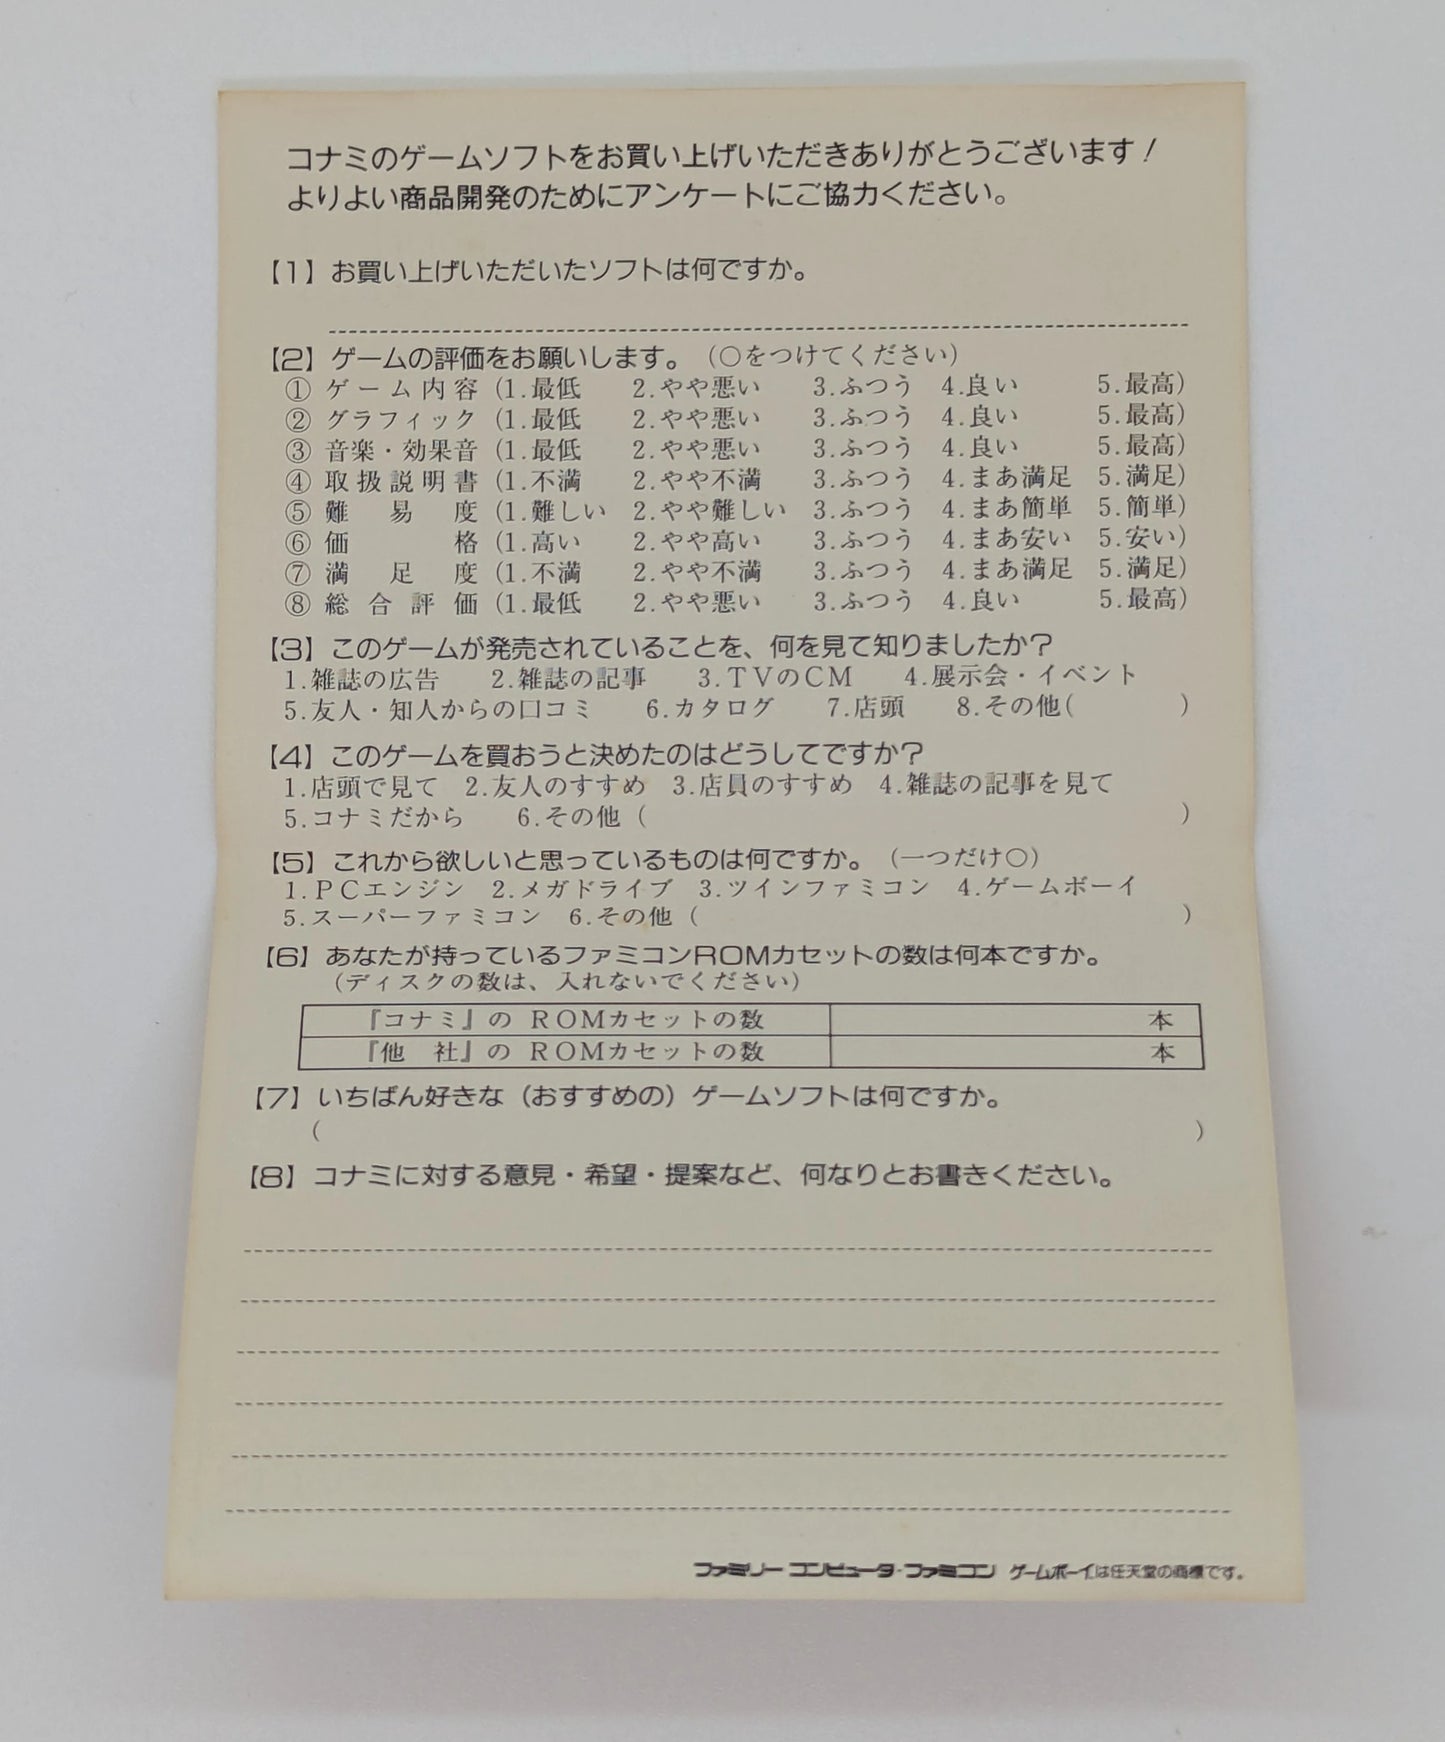 コナミのゲームソフトをお買い上げいただきありがとうございます！
よりよい商品開発のためにアンケートにご協力ください。
【1】お買い上げいただいたソフトは何ですか。
【2】ゲームの評価をお願いします。（○をつけてください）
① ゲーム内容 (1.最低 2.やや悪い 3.ふつう 4.良い 5.最高)
② グラフィック (1.最低 2.やや悪い 3.ふつう 4.良い 5.最高)
③ 音楽・効果音 (1.最低 2.やや悪い 3.ふつう 4.良い 5.最高)
④ 取扱説明書 (1.不満 2.やや不満 3.ふつう 4.まあ満足 5.満足)
⑤ 難易度 (1.難しい 2.やや難しい 3.ふつう 4.まあ簡単 5.簡単)
⑥ 価格 (1.高い 2.やや高い 3.ふつう 4.まあ安い 5.安い)
⑦ 満足度 (1.不満 2.やや不満 3.ふつう 4.まあ満足 5.満足)
⑧ 総合評価 (1.最低 2.やや悪い 3.ふつう 4.良い 5.最高)
【3】このゲームが発売されていることを、何を見て知りましたか？
1.雑誌の広告 2.雑誌の記事 3.TVのCM 4.展示会・イベント
5.友人・知人からの口コミ 6.カタログ 7.店頭 8.その他( )
【4】このゲームを買おうと決めたのはどうしてですか？
1.店頭で見て 2.友人のすすめ 3.店員のすすめ 4.雑誌の記事を見て
5.コナミだから 6.その他 ( )
【5】これから欲しいと思っているものは何ですか。（一つだけ○）
1.PCエンジン 2.メガドライブ 3.ツインファミコン 4.ゲームボーイ
5.スーパーファミコン 6.その他 ( )
【6】あなたが持っているファミコンROMカセットの数は何本ですか。
（ディスクの数は、入れないでください）
『コナミ』の ROMカセットの数 本
『他 社』の ROMカセットの数 本
【7】いちばん好きな（おすすめの）ゲームソフトは何ですか。
( )
【8】コナミに対する意見・希望・提案など、何なりとお書きください。
ファミリー コンピュータ・ファミコン ゲームボーイは任天堂の商標です。